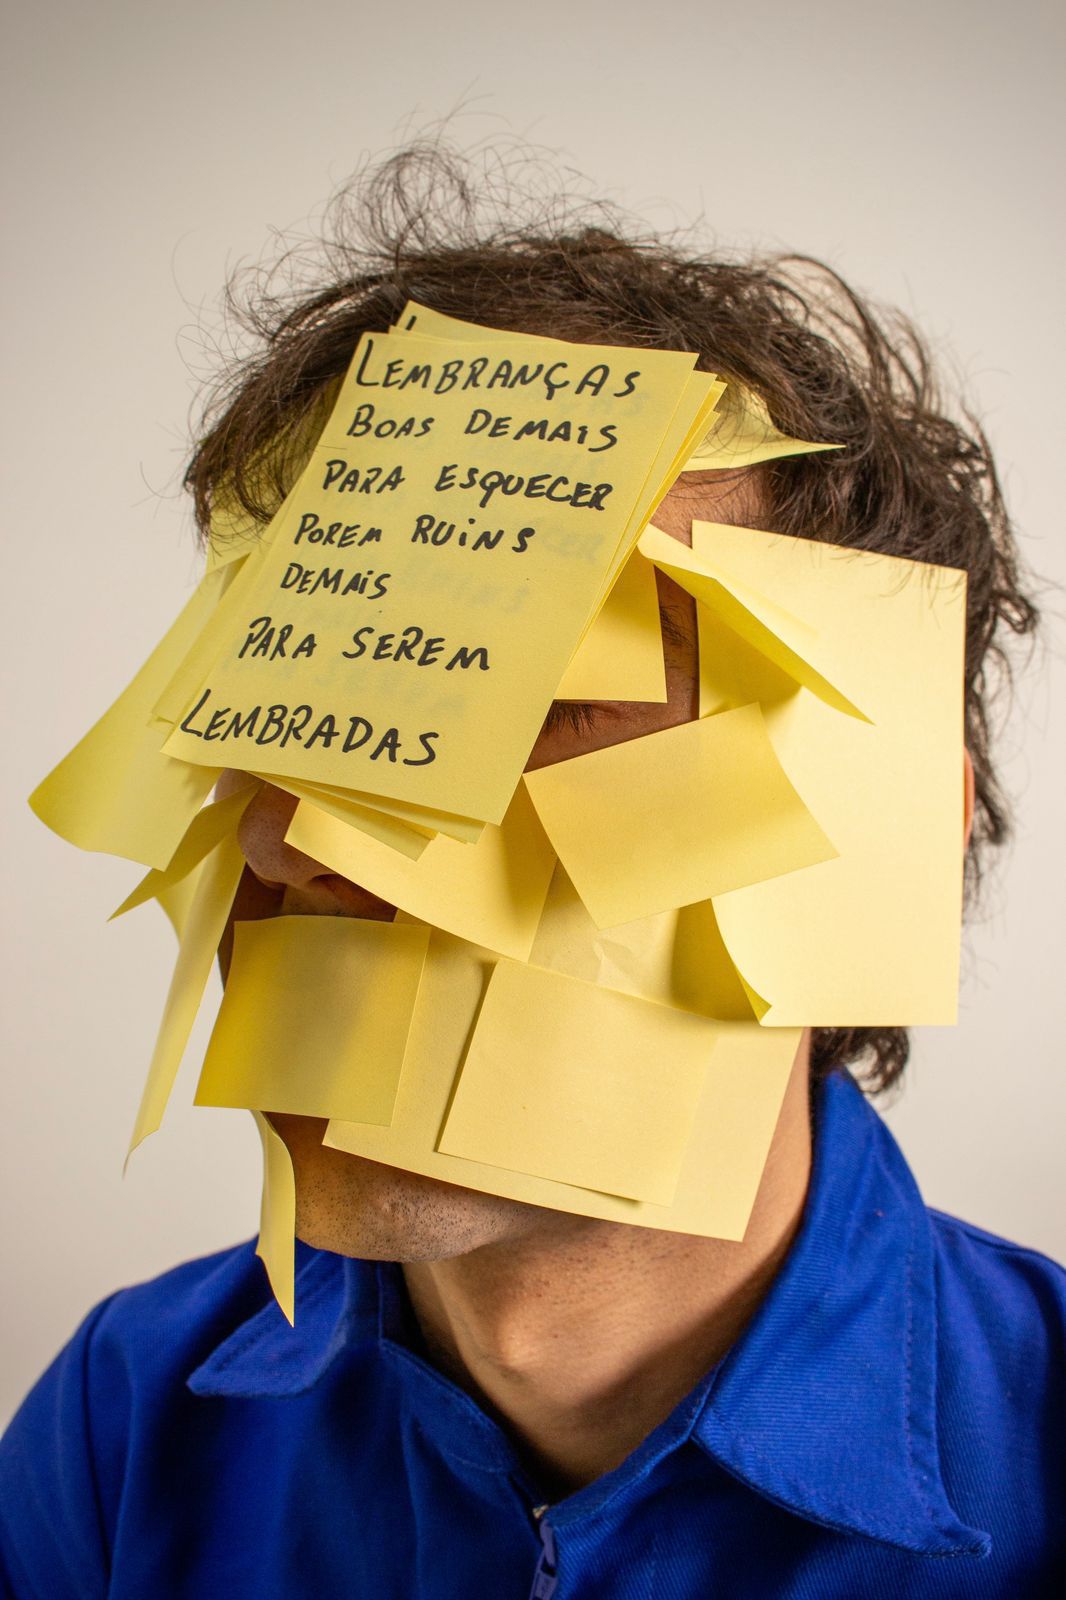 LEMBRANÇAS
BOAS DEMAIS
PARA ESQUECER
POREM RUINS
DEMAIS
PARA SEREM
LEMBRADAS